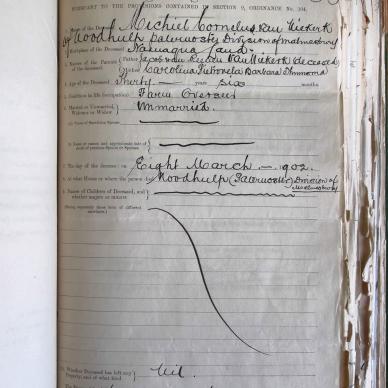 PURSUANT TO THE PROVISIONS CONTAINED IN SECTION 9, ORDINANCE No. 104.
1. Name of the Deceased Michiel Cornelus van Niekerk
of Noodhulp Division of Malmesbury
2. Birthplace of the Deceased Namaqua Land.
3. Names of the Parents of the Deceased { Father Jacob van van Niekerk deceased
Mother Carolina Petronela Barbara
4. Age of the Deceased Thirty years six months
5. Condition in life (occupation) Farm Overseer
6. Married or Unmarried, Widower or Widow } Unmarried.
(a) Name of Surviving Spouse
(b) Name or names and approximate date of death of previous Spouse or Spouses
7. The day of the decease: on Eight March 1902
8. At what House or where the person died Noodhulp Division of Malmesbury
9. Names of Children of Deceased, and whether majors or minors.
(Stating separately those born of different marriages.)
Whether Deceased has left any Property, and of what kind } Nil.